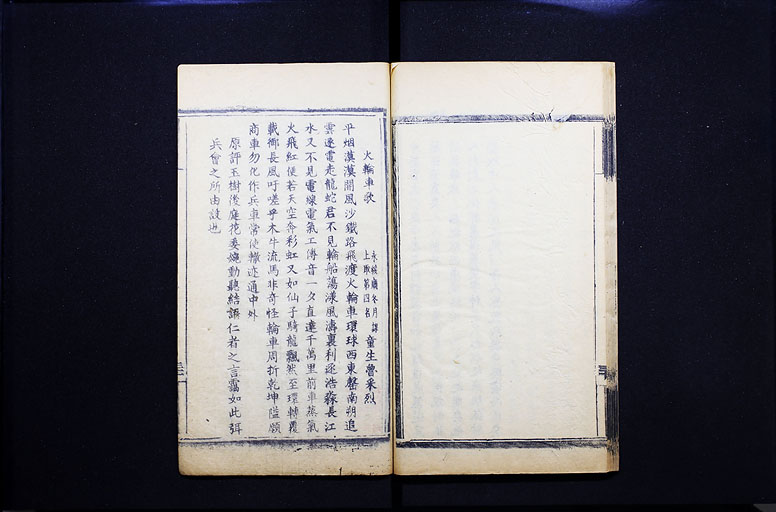 火輪車歌
永候廳冬月課
上取第四名
童生曾采烈
平烟漠漠開風沙鐵路飛渡火輪車環球西東罄南朔追
雲逐電走龍蛇君不見輪船蕩漾風濤裏利逐浩淼長江
水又不見電線電氣工傳音一夕直達千萬里前車蒸氣
火飛紅使若天空奔彩虹又如仙子騎龍飄然至環轉覆
載御長風吁嗟乎木牛流馬非奇怪輪車周折乾坤隘願
商車勿化作兵車常使轍迹通中外
原評玉樹後庭花委婉動聽結語仁者之言靄如此弭
兵會之所由設也